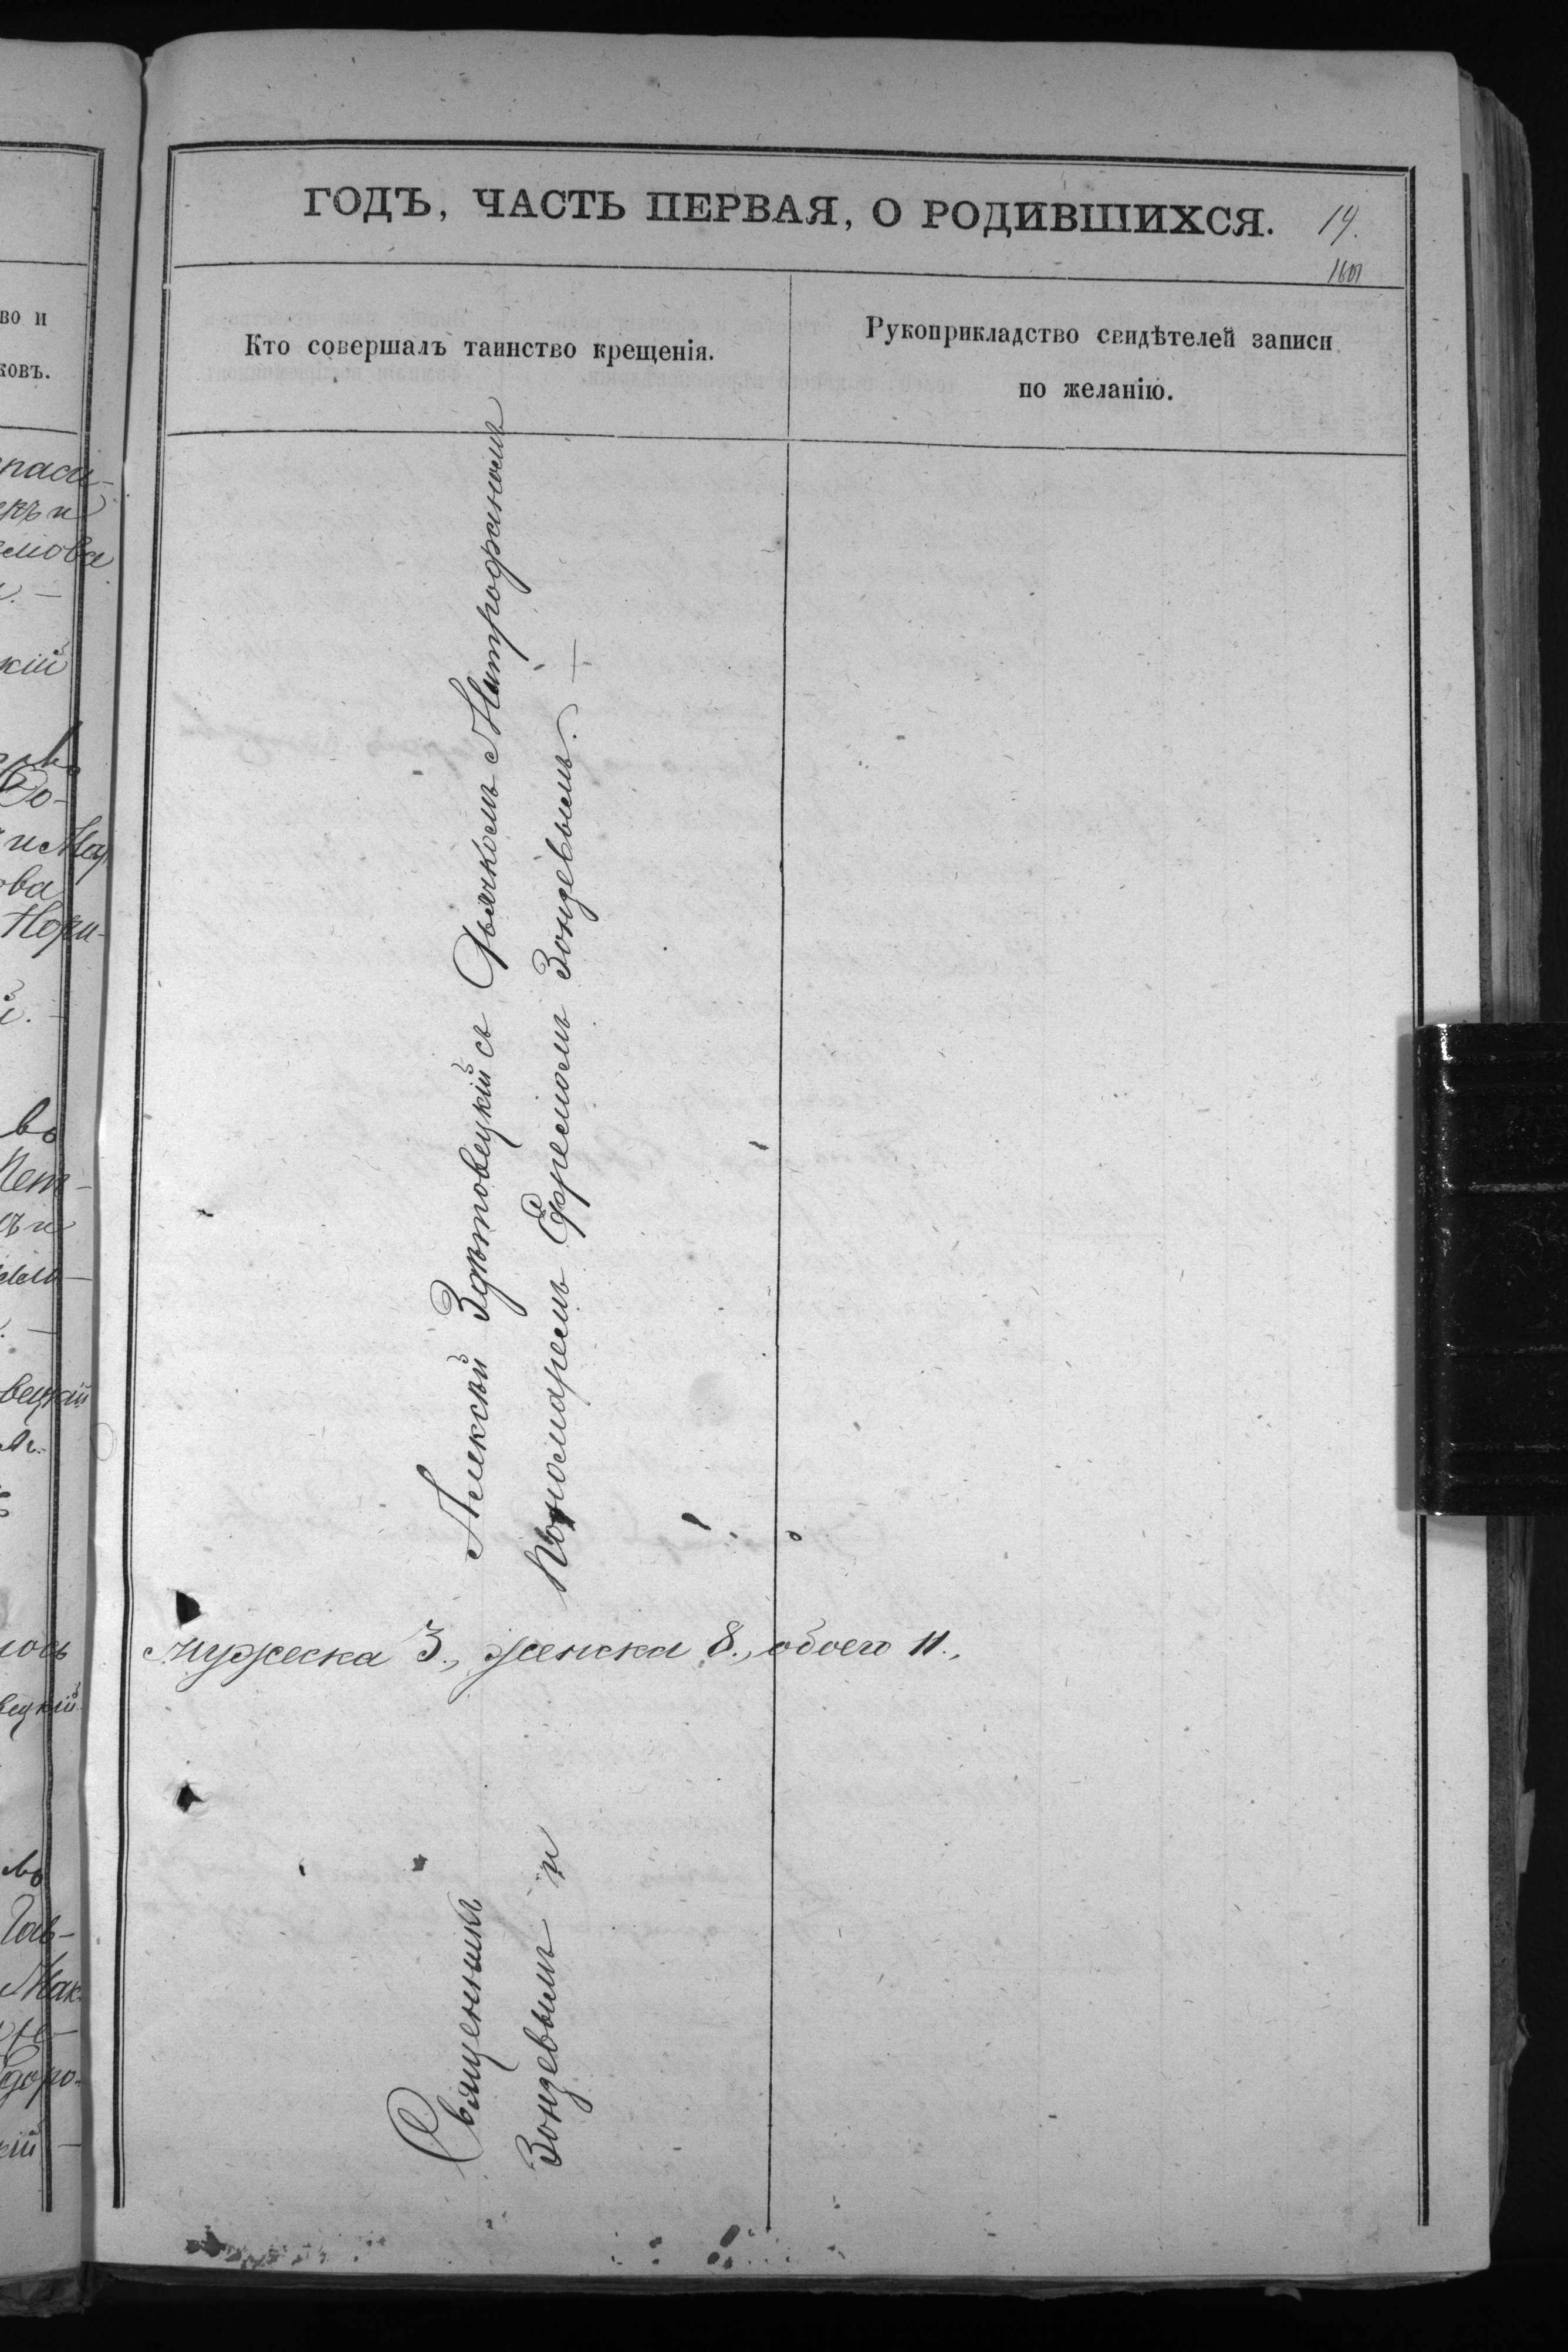 ГОДЪ, ЧАСТЬ ПЕРВАЯ, О РОДИВШИХСЯ.
14.
Кто совершалъ таинство крещенія.
Рукоприкладство свидѣтелей записи
по желанію.
Священникъ Алексѣй Здѣтовецкій съ Дьячкомъ Митрофаномъ
Зондевымъ и Пономаремъ Ефремомъ Зондевымъ. —
мужеска 3., женска 8., обоего 11.,
во и
ковъ.
кій
ова
во
вецкій